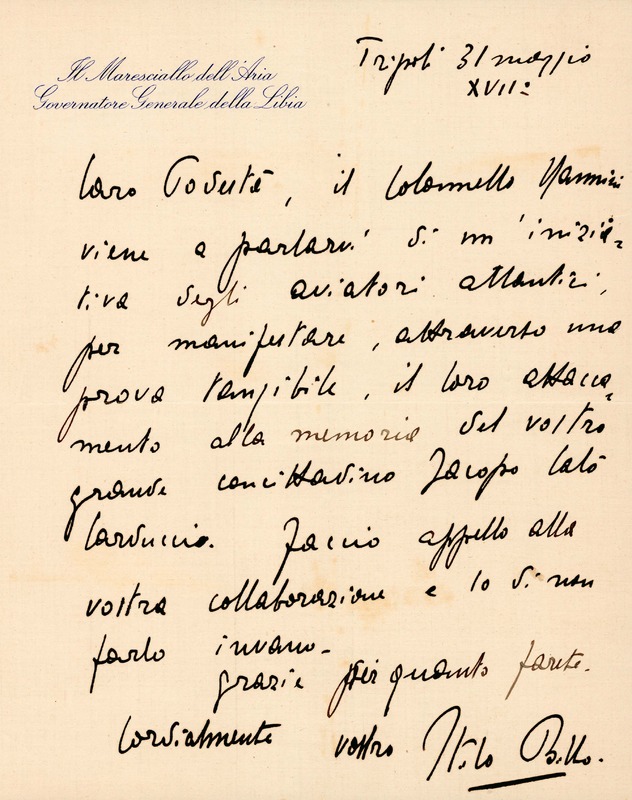 Il Maresciallo dell'Aria
Governatore Generale della Libia
Tripoli 31 maggio
XVII:
Caro Podestà, il Colonnello Nannini
viene a parlarvi di un'inizia=
tiva degli aviatori atlantici,
per manifestare, attraverso una
prova tangibile, il loro attacca=
mento alla memoria del vostro
grande concittadino Jacopo Calò
Carduccio. Faccio appello alla
vostra collaborazione e so di non
farlo invano-
grazie per quanto farete.
Cordialmente vostro Italo Balbo.